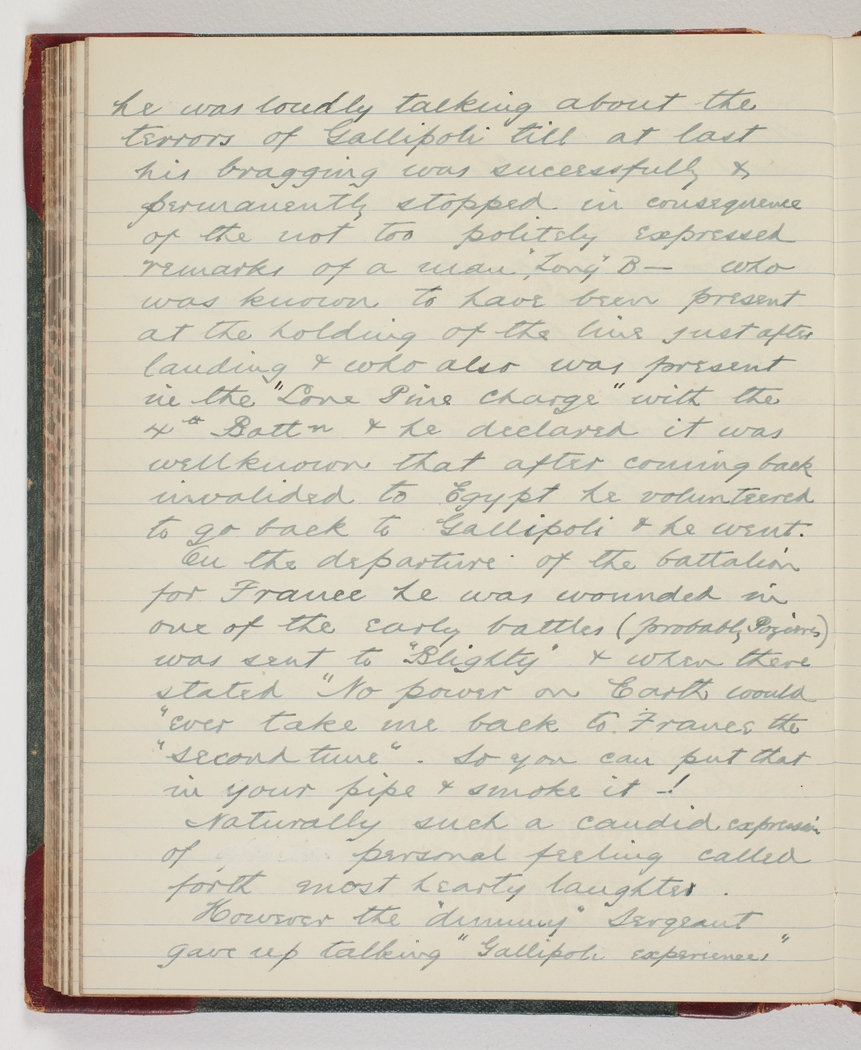 he was loudly talking about the
terrors of Gallipoli till at last
his bragging was sucessfully &
permanently stopped in consequence
of the not too politely expressed
remarks of a man "Long" B— who
was known to have been present
at the holding of the line just after
landing & who also was present
in the "Lone Pine Charge" with the
4th Battn & he declared it was
wellknown that after coming back
invalided to Egypt he volunteered
to go back to Gallipoli & he went.
On the departure of the battalion
for France he was wounded in
one of the early battles (probably Pozieres)
was sent to "Blighty" & when there
stated "No power on Earth would
"ever take me back to France the
"second time". So you can put that
in your pipe & smoke it –!
Naturally such a candid expression
of personal feeling called
forth most hearty laughter.
However the "dummy" Sergeant
gave up talking "Gallipoli experiences"